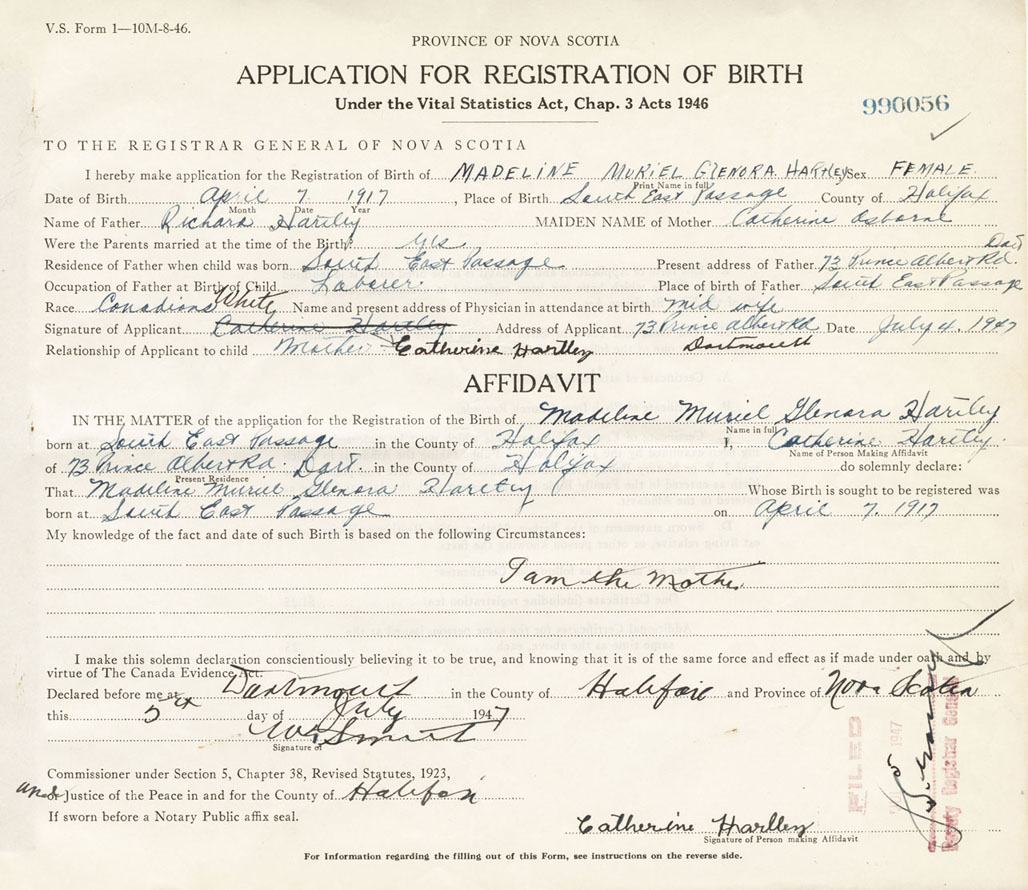 V.S. Form 1—10M-8-46.
PROVINCE OF NOVA SCOTIA
APPLICATION FOR REGISTRATION OF BIRTH
Under the Vital Statistics Act, Chap. 3 Acts 1946
990056
TO THE REGISTRAR GENERAL OF NOVA SCOTIA
I hereby make application for the Registration of Birth of MADELINE MURIEL GLENORA HARTLEY Sex FEMALE
Print Name in full
Date of Birth April 7 1917, Place of Birth South East Passage County of Halifax
Month Date Year
Name of Father Richard Hartley MAIDEN NAME of Mother Catherine Osborne
Were the Parents married at the time of the Birth? yes
Dart
Residence of Father when child was born South East Passage Present address of Father 73 Prince Albert Rd.
Occupation of Father at Birth of Child Laborer. Place of birth of Father South East Passage
Race Canadians White Name and present address of Physician in attendance at birth mid wife
Signature of Applicant Catherine Hartley Address of Applicant 73 Prince Albert Rd Date July 4. 1947
Relationship of Applicant to child Mother Catherine Hartley Dartmouth
AFFIDAVIT
IN THE MATTER of the application for the Registration of Birth of Madeline Muriel Glenora Hartley
Name in full
born at South East Passage in the County of Halifax I, Catherine Hartley.
Name of Person Making Affidavit
of 73 Prince Albert Rd. Dart. in the County of Halifax do solemnly declare:
Present Residence
That Madeline Muriel Glenora Hartley Whose Birth is sought to be registered was
born at South East Passage on April 7. 1917
My knowledge of the fact and date of such Birth is based on the following Circumstances:
I am the Mother.
I make this solemn declaration conscientiously believing it to be true, and knowing that it is of the same force and effect as if made under oath and by
virtue of The Canada Evidence Act.
Declared before me at Dartmouth in the County of Halifax and Province of Nova Scotia
this 5th day of July 1947
Signature of
Commissioner under Section 5, Chapter 38, Revised Statutes, 1923,
and or Justice of the Peace in and for the County of Halifax
If sworn before a Notary Public affix seal.
Catherine Hartley
Signature of Person making Affidavit
For Information regarding the filling out of this Form, see instructions on the reverse side.
FILED
1947
Deputy Registrar General